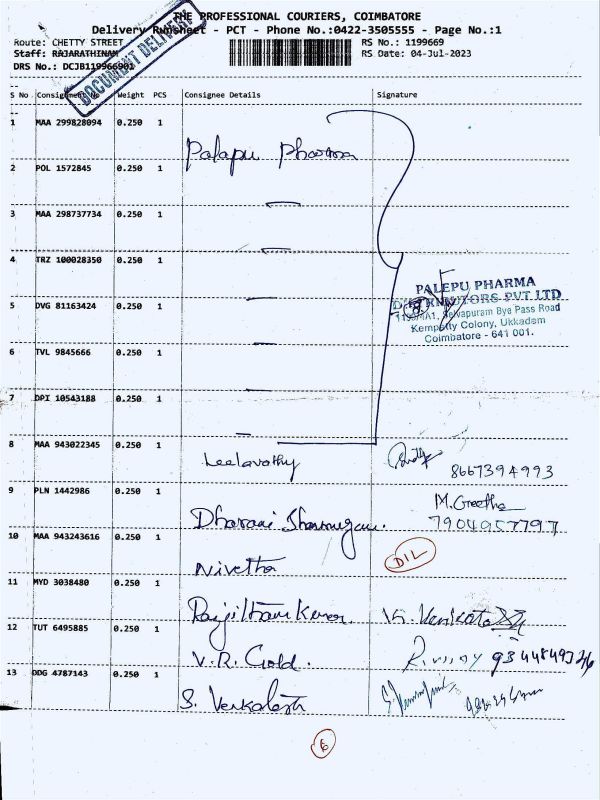 THE PROFESSIONAL COURIERS, COIMBATORE
Delivery Runsheet - PCT - Phone No.:0422-3505555 - Page No.:1
Route: CHETTY STREET
RS No.: 1199669
Staff: RAJARATHINAM
RS Date: 04-Jul-2023
DRS No.: DCJB119966901
DOCUMENT DELIVERY
S No Consignment No Weight PCS Consignee Details Signature
1 MAA 299828094 0.250 1
Palapu Pharma
2 POL 1572845 0.250 1
3 MAA 298737734 0.250 1
4 TRZ 100028350 0.250 1
PALEPU PHARMA
DISTRIBUTORS PVT LTD
5 DVG 81163424 0.250 1
Selvapuram Bye Pass Road
Kempatty Colony, Ukkadam
Coimbatore - 641 001.
6 TVL 9845666 0.250 1
7 DPI 10543188 0.250 1
8 MAA 943022345 0.250 1
Leelavathy
8667394993
9 PLN 1442986 0.250 1
M. Geetha
Dharani Shanmugam
7904957797
10 MAA 943243616 0.250 1
Nivetha
DIL
11 MYD 3038480 0.250 1
Ranjithamkumar
V. Venkata
12 TUT 6495885 0.250 1
V.R. Gold.
13 DDG 4787143 0.250 1
S. Venkatesh
6